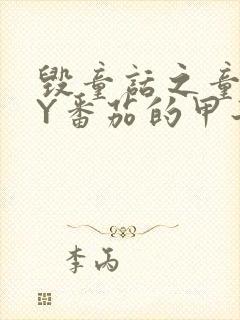 毁童话之童
Y番茄的甲
李丙